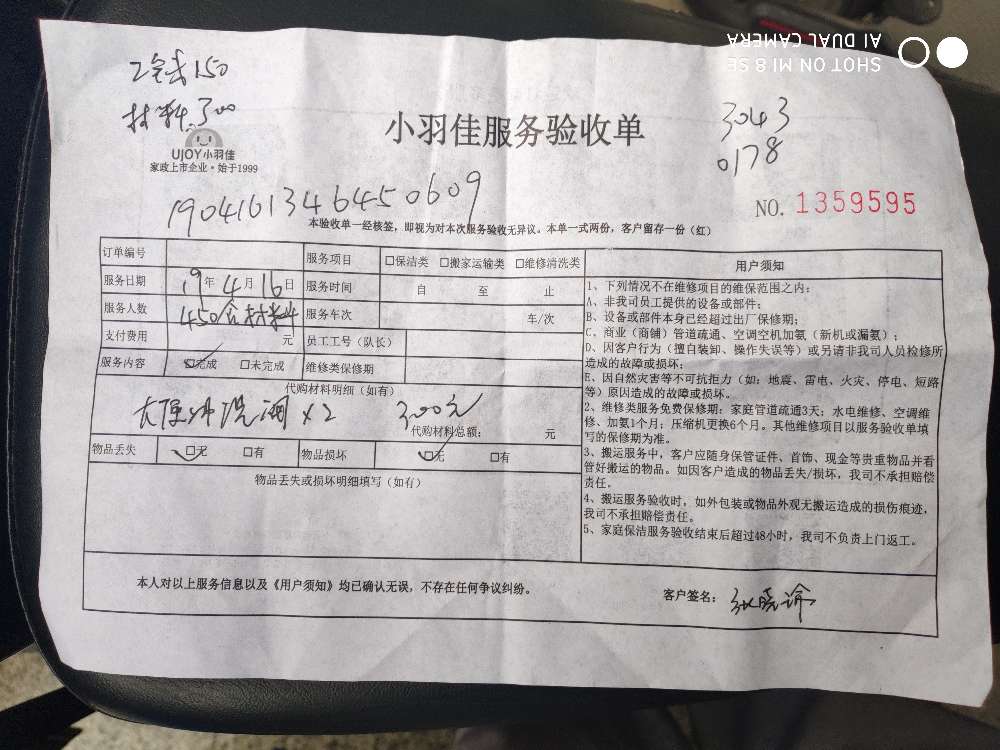 SHOT ON MI 8 SE
AI DUAL CAMERA
工钱150
材料.300
UJOY小羽佳
家政上市企业·始于1999
小羽佳服务验收单
3043
0178
1904161346450609
NO. 1359595
本验收单一经核签，即视为对本次服务验收无异议。本单一式两份，客户留存一份（红）
订单编号
服务项目 □保洁类 □搬家运输类 □维修清洗类
服务日期 19年4月16日
服务时间 自 至 止
服务人数 450含材料
服务车次 车/次
支付费用 元
员工工号（队长）
服务内容 □完成 □未完成
维修类保修期
代购材料明细（如有）
大便冲洗阀×2 300元
代购材料总额： 元
物品丢失 □无 □有
物品损坏 □无 □有
物品丢失或损坏明细填写（如有）
用户须知
1、下列情况不在维修项目的维保范围之内：
A、非我司员工提供的设备或部件；
B、设备或部件本身已经超过出厂保修期；
C、商业（商铺）管道疏通、空调空机加氨（新机或漏氨）；
D、因客户行为（擅自装卸、操作失误等）或另请非我司人员检修所
造成的故障或损坏；
E、因自然灾害等不可抗拒力（如：地震、雷电、火灾、停电、短路
等）原因造成的故障或损坏。
2、维修类服务免费保修期：家庭管道疏通3天；水电维修、空调维
修、加氨1个月；压缩机更换6个月。其他维修项目以服务验收单填
写的保修期为准。
3、搬运服务中，客户应随身保管证件、首饰、现金等贵重物品并看
管好搬运的物品。如因客户造成的物品丢失/损坏，我司不承担赔偿
责任。
4、搬运服务验收时，如外包装或物品外观无搬运造成的损伤痕迹，
我司不承担赔偿责任。
5、家庭保洁服务验收结束后超过48小时，我司不负责上门返工。
本人对以上服务信息以及《用户须知》均已确认无误，不存在任何争议纠纷。
客户签名： 张晓谕